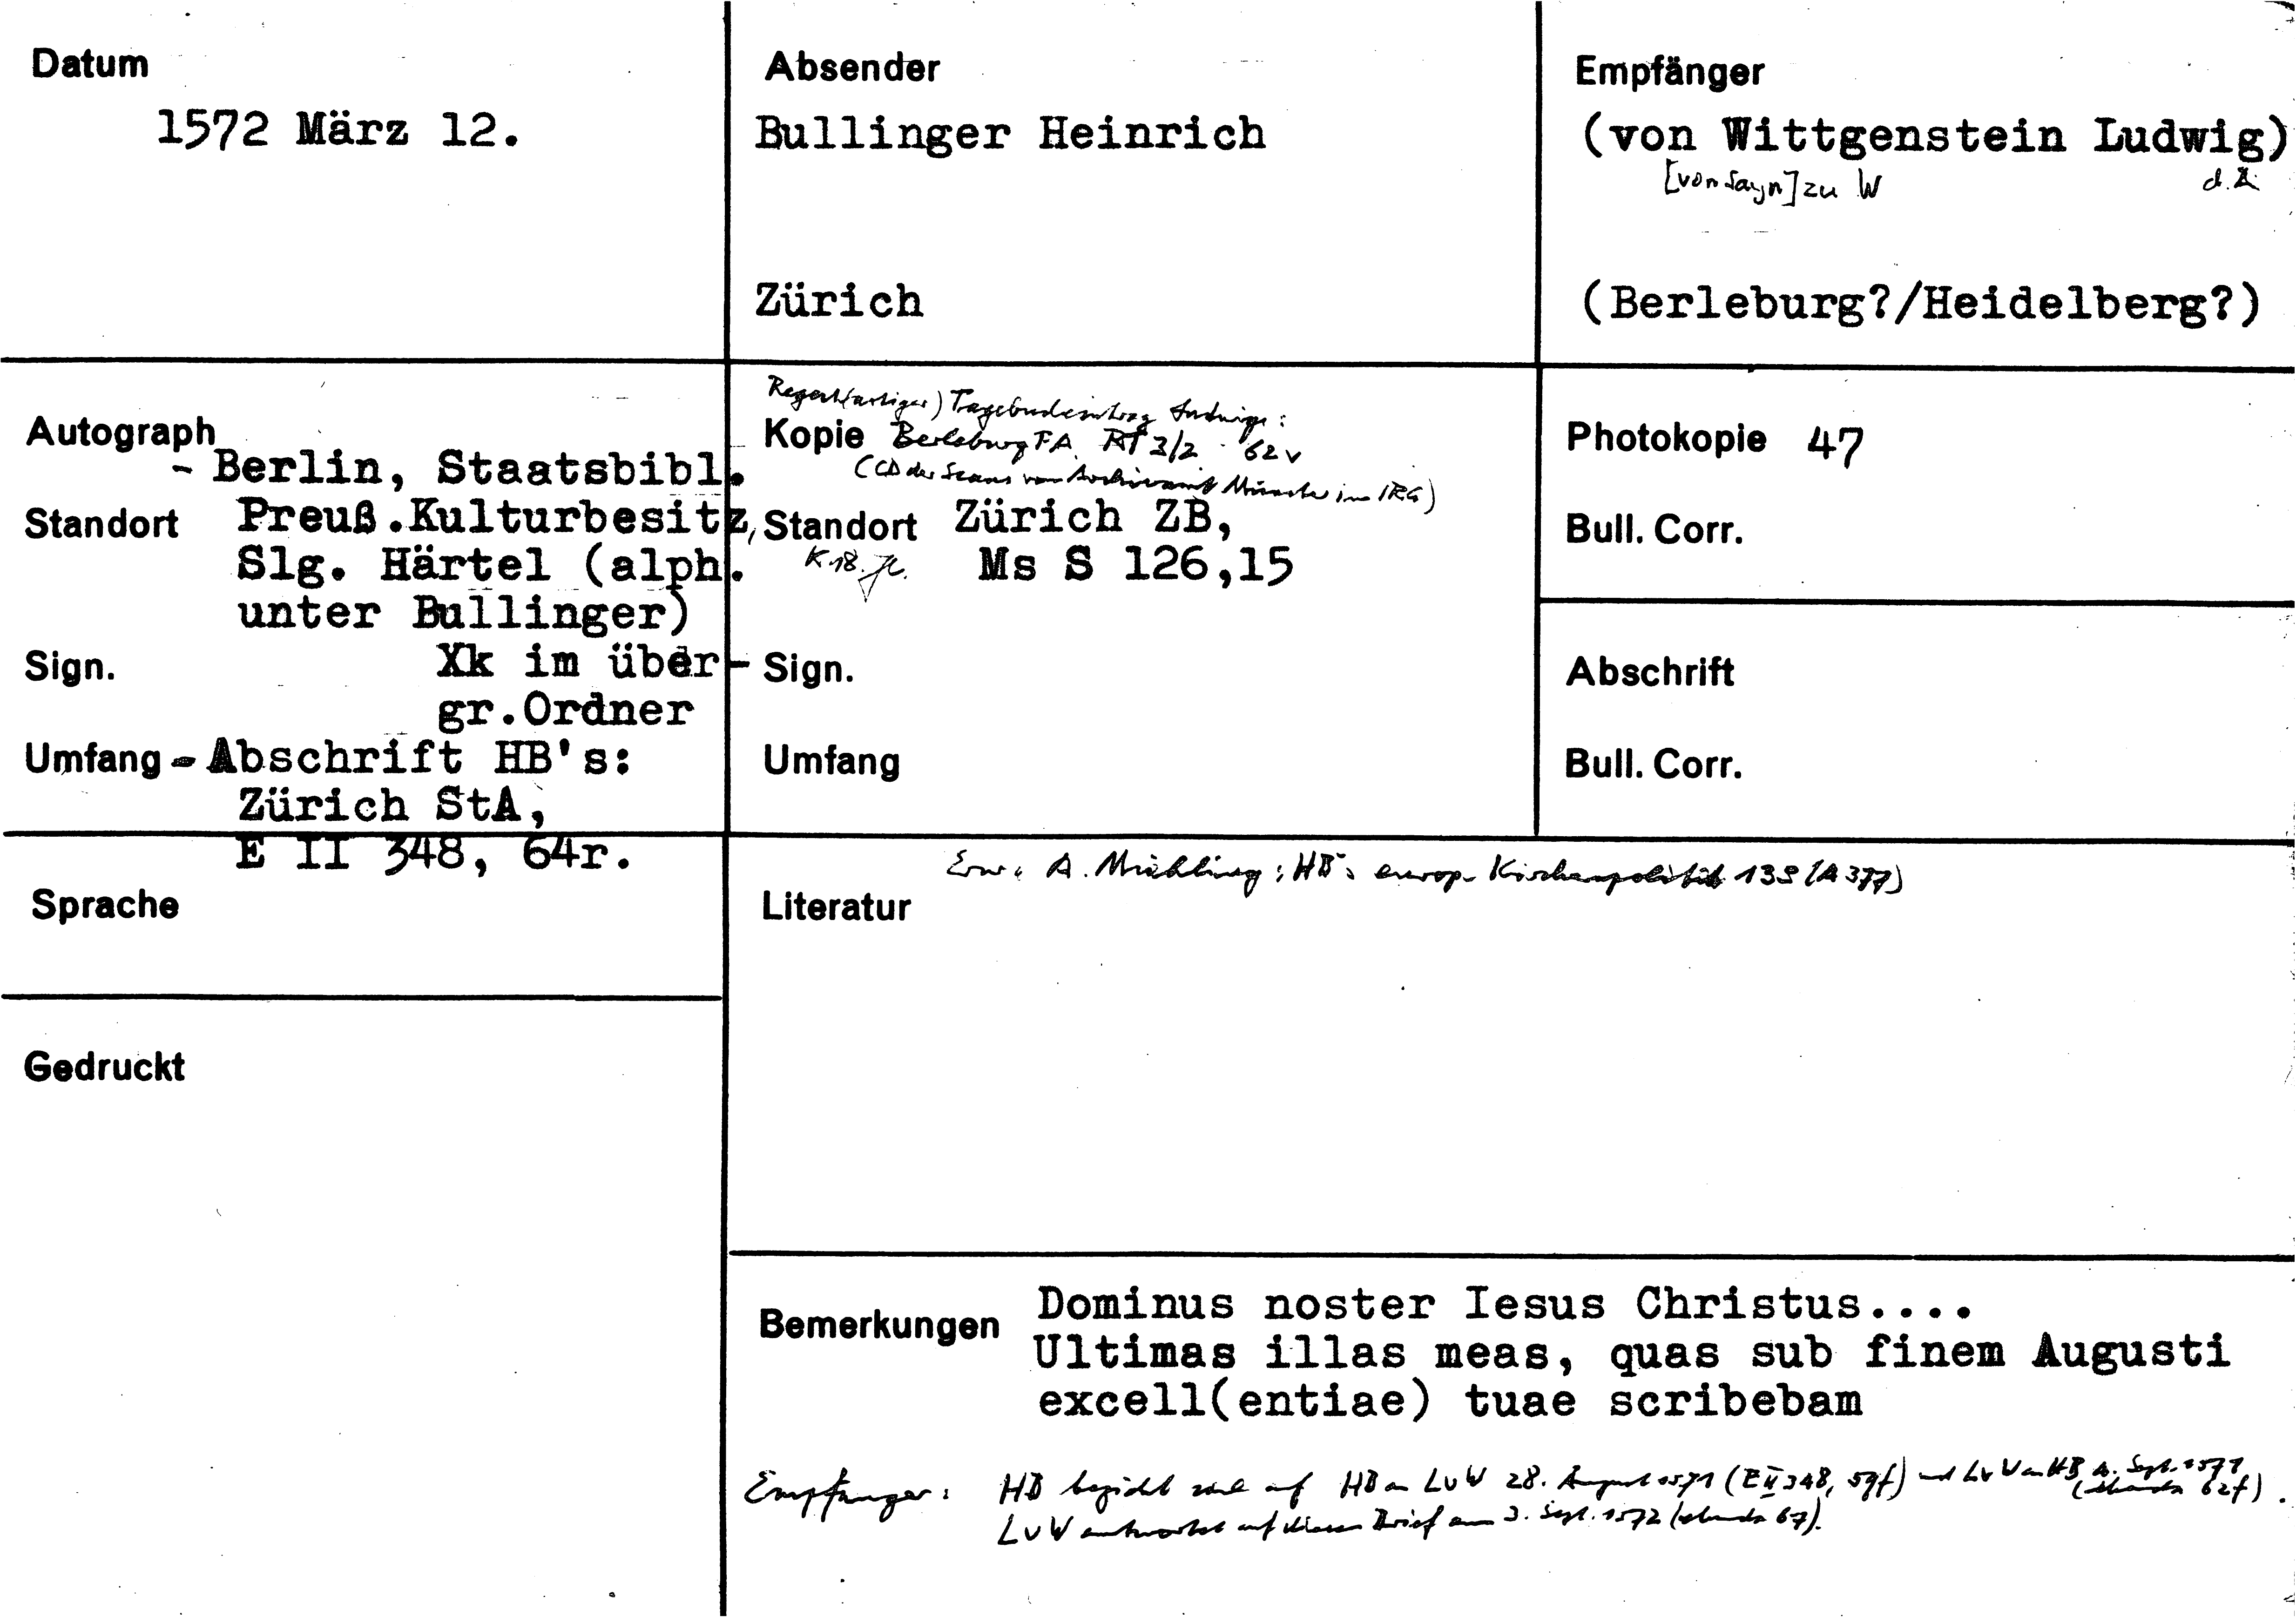 Datum
1572 März 12.
Absender
Bullinger Heinrich
Zürich
Empfänger
(von Wittgenstein Ludwig)
[von Sayn] zu W d. Ä.
(Berleburg?/Heidelberg?)
Autograph
- Berlin, Staatsbibl.
Standort Preuß.Kulturbesitz,
Slg. Härtel (alph.
unter Bullinger)
Sign. Xk im über-
gr.Ordner
Umfang - Abschrift HB's:
Zürich StA,
E II 348, 64r.
Regest(artiger) Tagebucheintrag Ludwigs:
Kopie Berleburg FA RT 3/2 62v
(CD der Scans vom Archivamt Münster im IRG)
Standort Zürich ZB,
K 18. Jh. Ms S 126,15
Sign.
Umfang
Photokopie 47
Bull. Corr.
Abschrift
Bull. Corr.
Sprache
Gedruckt
Erw. A. Mühling: HB's europ. Kirchenpolitik 139 (A 377)
Literatur
Bemerkungen Dominus noster Iesus Christus....
Ultimas illas meas, quas sub finem Augusti
excell(entiae) tuae scribebam
Empfänger: HB bezieht sich auf HB an LvW 28. August 1571 (E II 348, 59f) und LvW an HB Sept. 1571 (ebenda 62f).
LvW antwortet auf diesen Brief am 3. Sept. 1572 (ebenda 67).